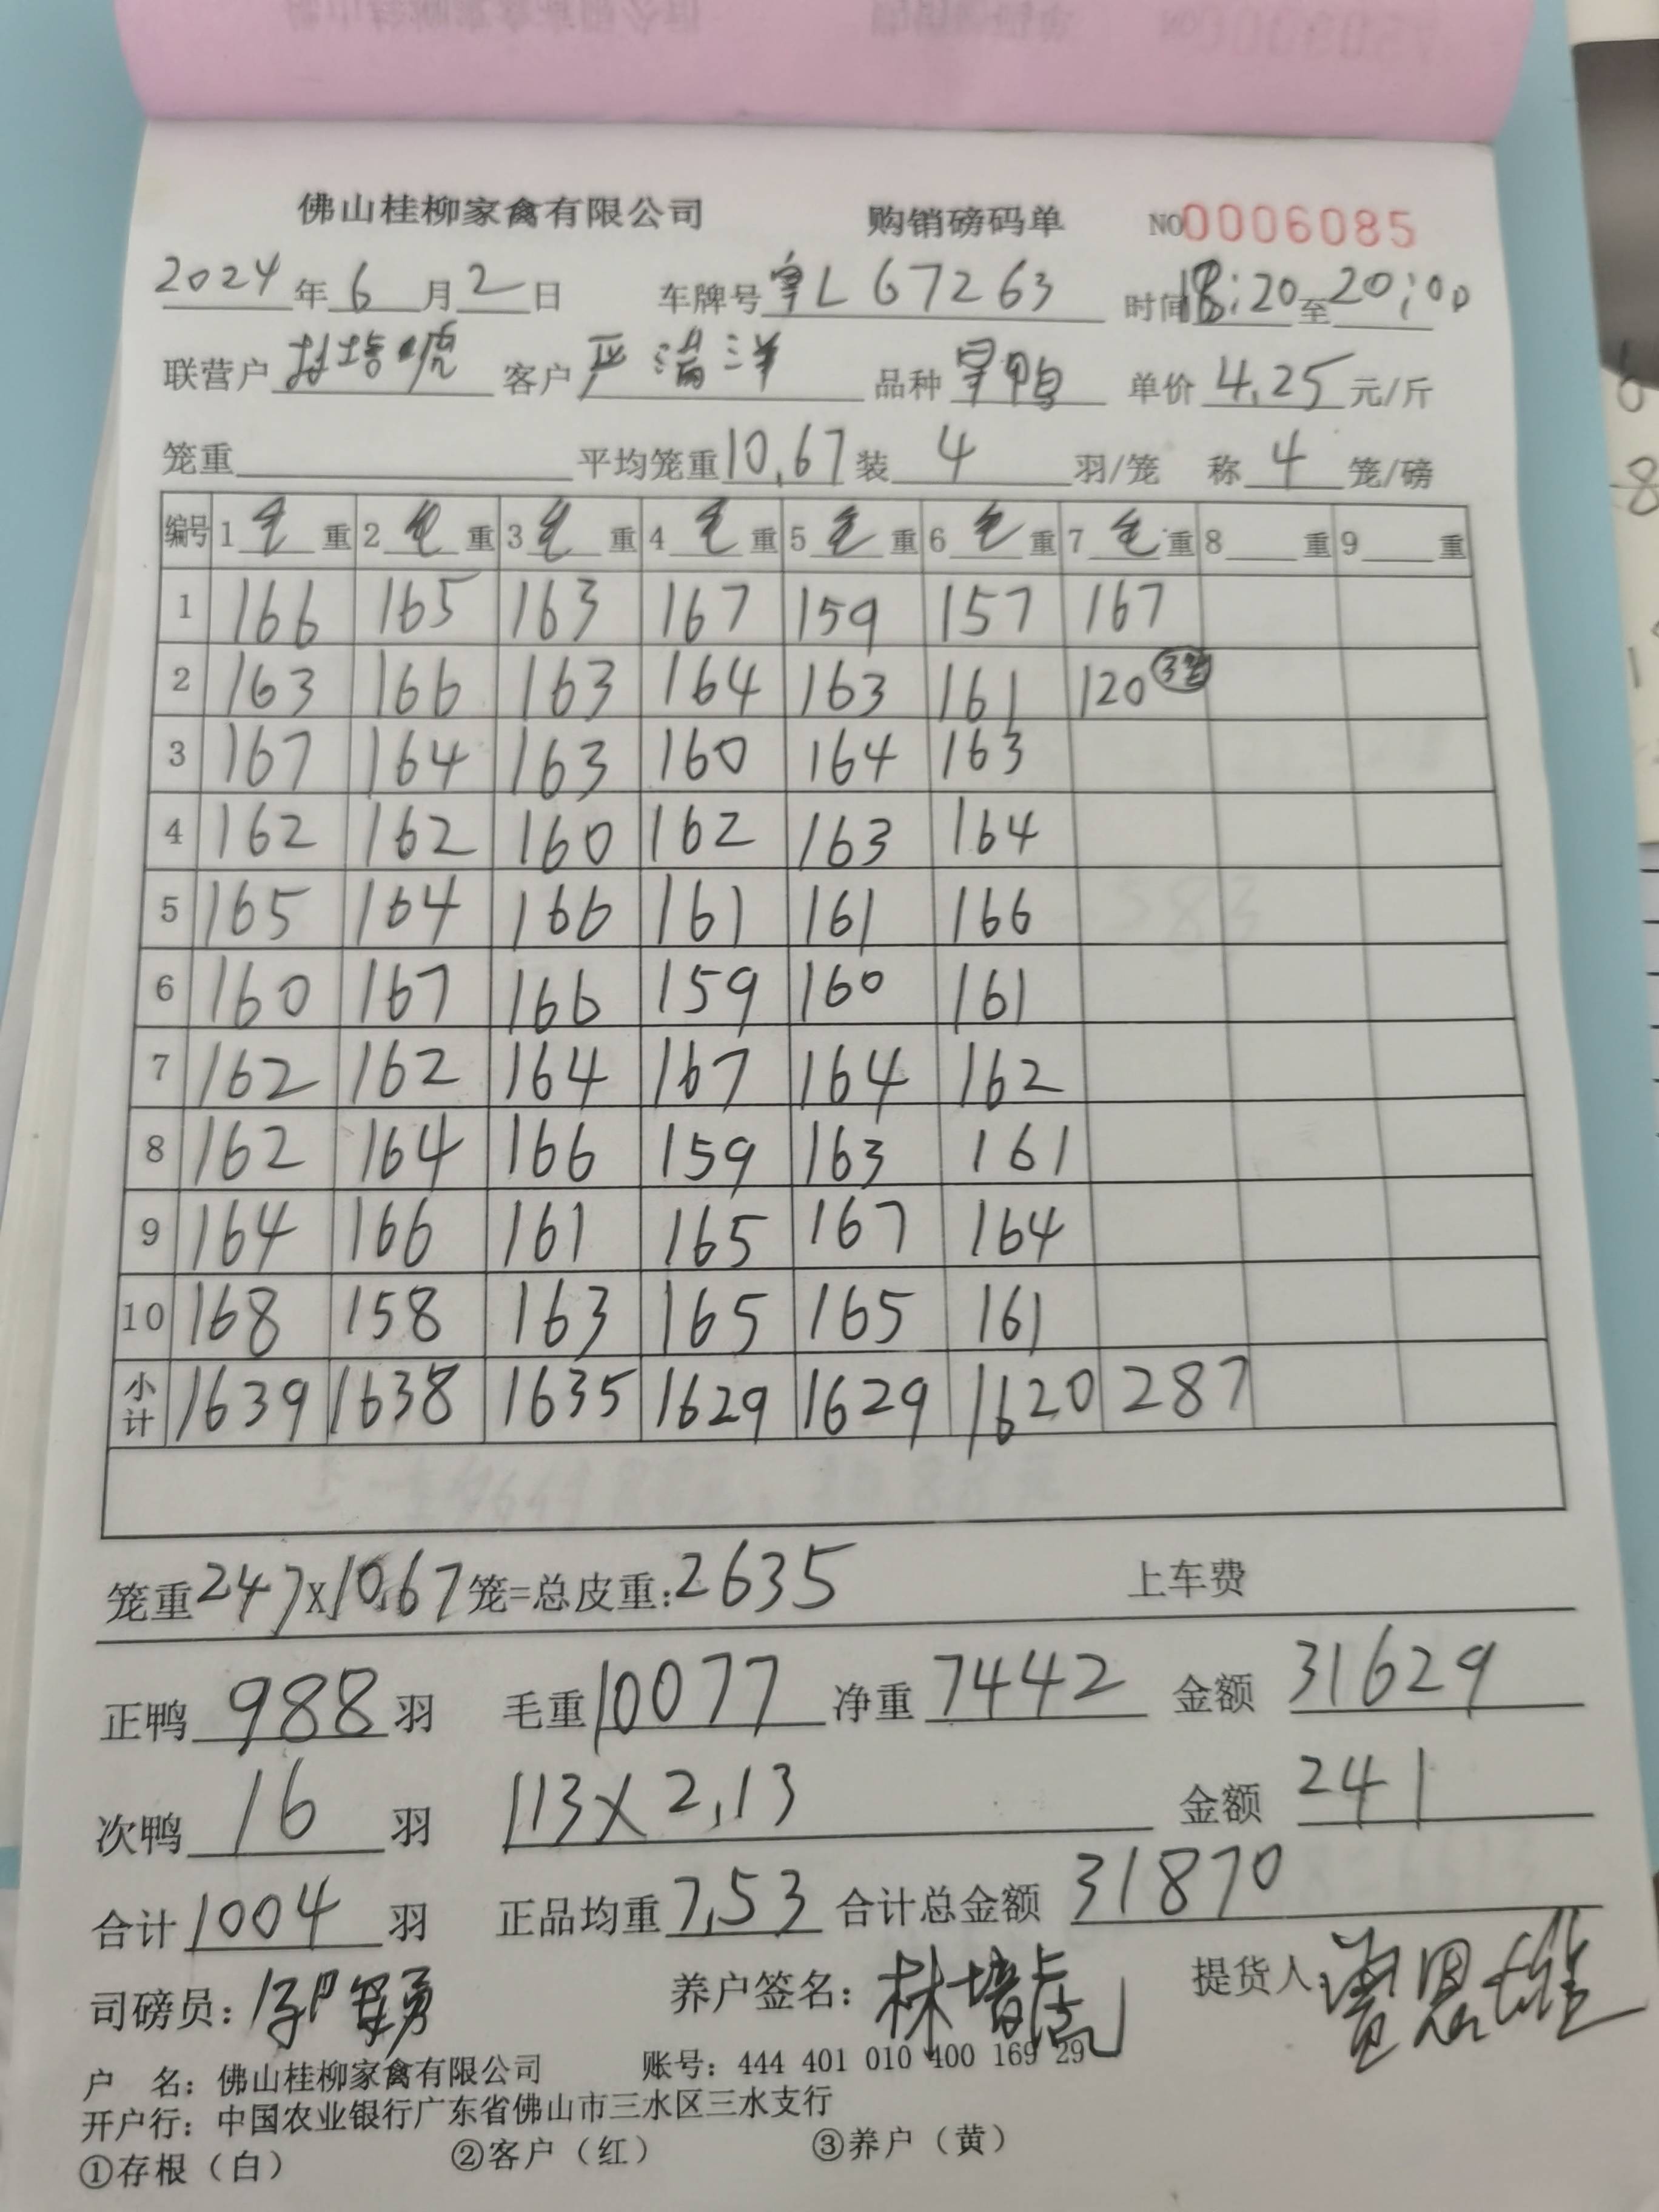 佛山桂柳家禽有限公司 购销磅码单 NO0006085
2024年6月2日 车牌号粤L67263 时间18:20至20:00
联营户林培虎 客户严满洋 品种旱鸭 单价4.25元/斤
笼重 平均笼重10.67装4羽/笼 称4笼/磅
编号 1毛重 2毛重 3毛重 4毛重 5毛重 6毛重 7毛重 8重 9重
1 166 165 163 167 159 157 167
2 163 166 163 164 163 161 120 3笼
3 167 164 163 160 164 163
4 162 162 160 162 163 164
5 165 164 166 161 161 166
6 160 167 166 159 160 161
7 162 162 164 167 164 162
8 162 164 166 159 163 161
9 164 166 161 165 167 164
10 168 158 163 165 165 161
小计 1639 1638 1635 1629 1629 1620 287
笼重247x10.67笼=总皮重:2635 上车费
正鸭988羽 毛重10077 净重7442 金额31629
次鸭16羽 113x2.13 金额241
合计1004羽 正品均重7.53 合计总金额31870
司磅员: 养户签名:林培虎 提货人:
户 名:佛山桂柳家禽有限公司 账号:444 401 010 400 169 29
开户行:中国农业银行广东省佛山市三水区三水支行
①存根（白） ②客户（红） ③养户（黄）